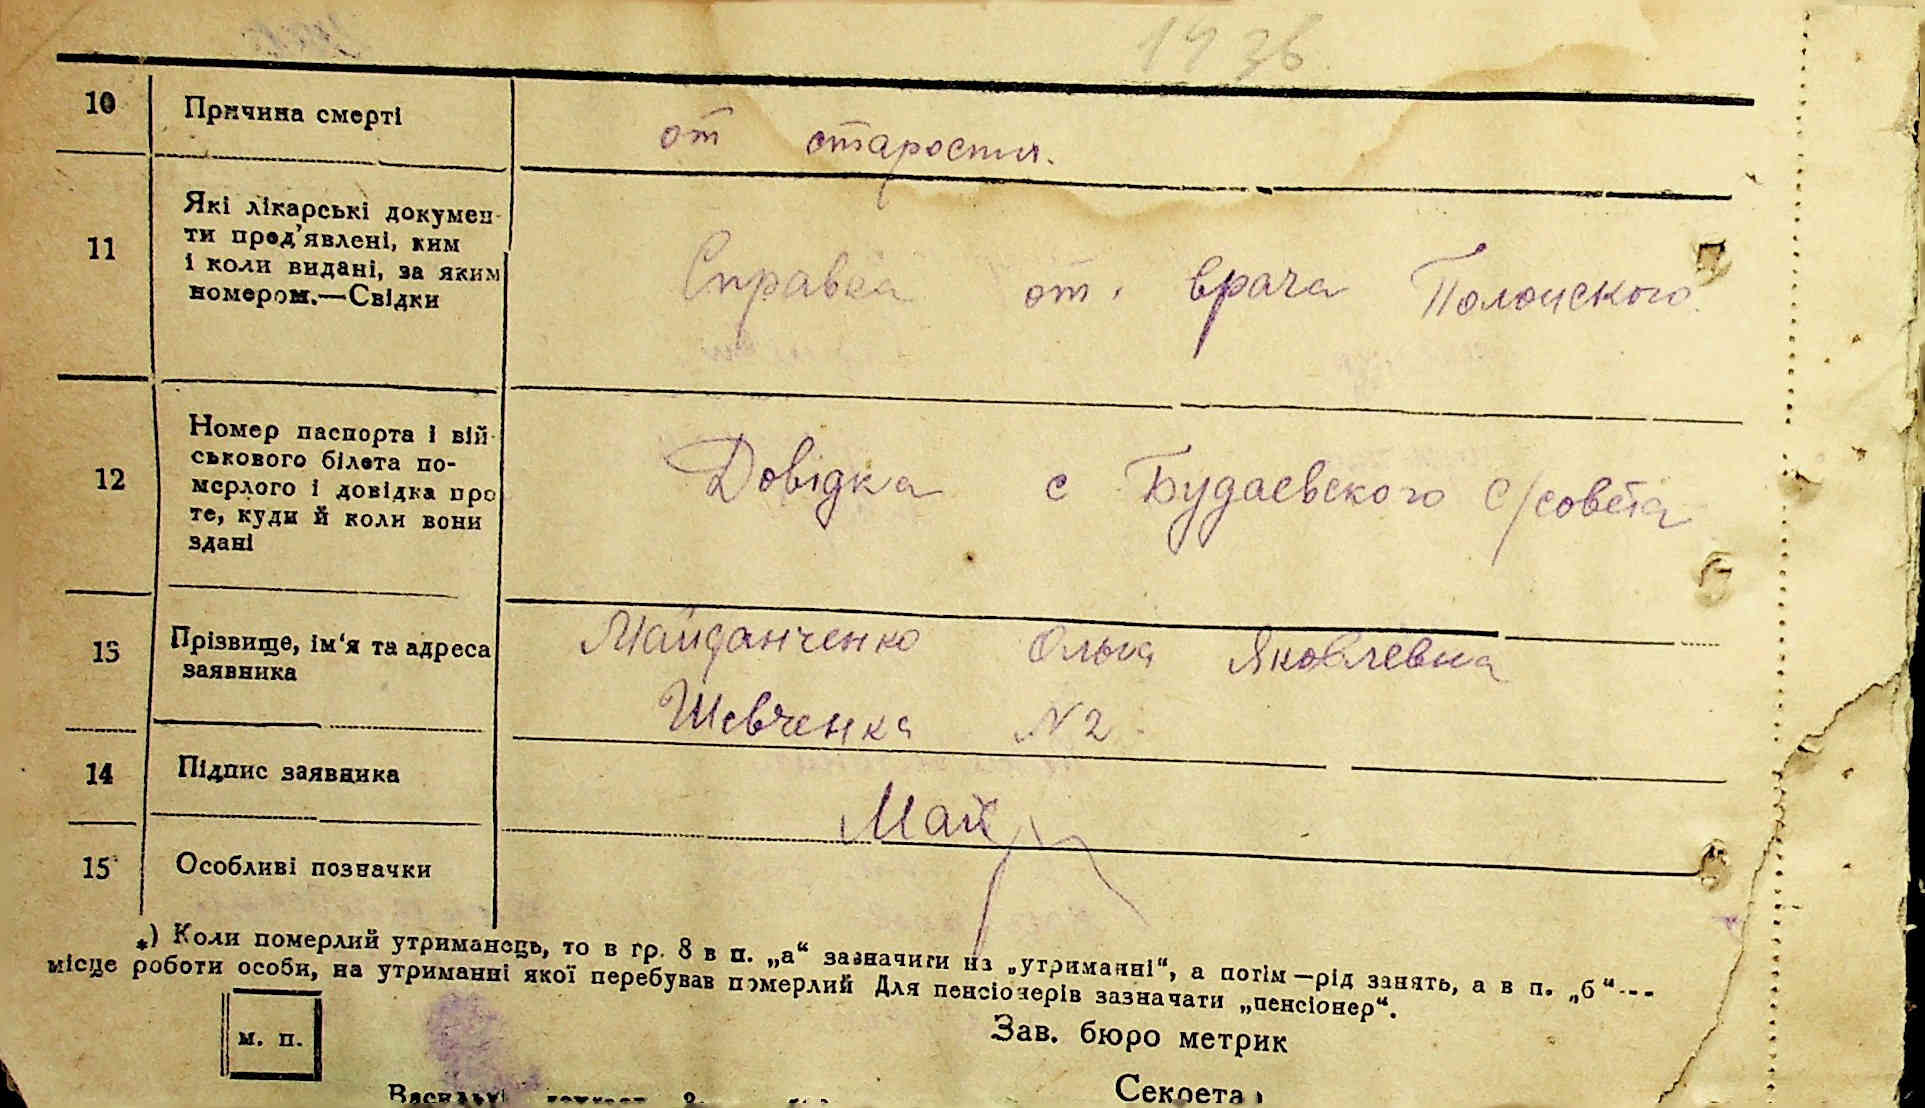 1936
10 Причина смерті от старости.
11 Які лікарські докумен-
ти пред'явлені, ким
і коли видані, за яким
номером.—Свідки
Справка от врача Полонского.
12 Номер паспорта і вій-
ськового білета по-
мерлого і довідка про
те, куди й коли вони
здані
Довідка с Будаевского с/совета
13 Прізвище, ім'я та адреса
заявника
Майданченко Ольга Яковлевна
Шевченка N2
14 Підпис заявника
Май
15 Особливі позначки
*) Коли померлий утриманець, то в гр. 8 в п. „а“ зазначити на „утриманні“, а потім—рід занять, а в п. „б“---
місце роботи особи, на утриманні якої перебував померлий Для пенсіонерів зазначати „пенсіонер“.
м. п.
Зав. бюро метрик
Секрета